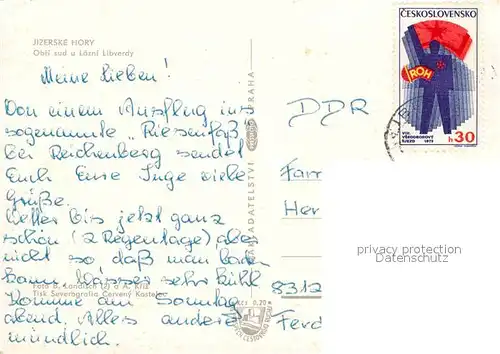 JIZERSKÉ HORY
Obří sud u Lázní Libverdy
Meine Lieben!
Von einem Ausflug ins
sogenannte „Riesenfaß
bei Reichenberg sendet
Euch Eure Inge viele
Grüße.
Wetter bis jetzt ganz
schön (2 Regentage) aber
nicht so daß man baden
kann Wasser sehr kühl
Komme am Sonntag
abend. Alles andere
mündlich.
Foto B. Landisch (2) a A. Kříž
Tisk Severografia Červený Kostelec
Kčs 0,20
NAKLADATELSTVÍ
PRAHA
ČESKOSLOVENSKO
ROH
VIII.
VŠEODBOROVÝ
SJEZD 1972
h 30
DDR
Fam
Her
8312
Ferd
privacy protection
Datenschutz